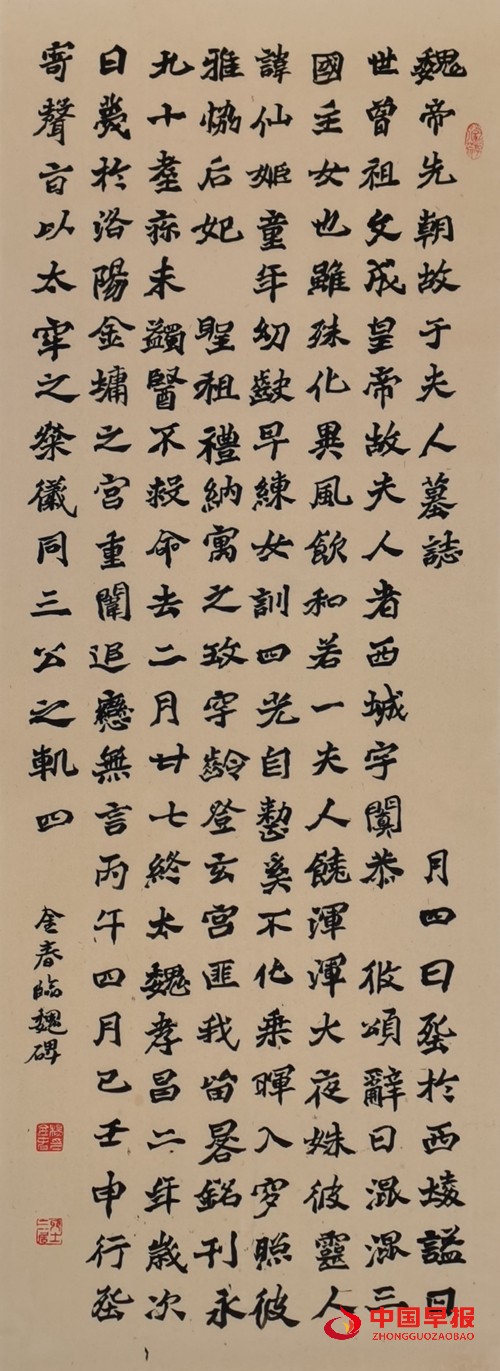 魏帝先朝故于夫人墓誌 月四日塟於西埈謚曰
世曾祖文成皇帝故夫人者西城宇闐恭 彼頌辭曰混混三
國主女也雖殊化異風飲和若一夫人饒渾渾大夜姝彼靈人
諱仙姬童年幼齓早練女訓四光自整奚不化乘暉入穸照彼
雅懰后妃 聖祖禮納寓之玫穹齡登玄宮匪我畄晷銘刊永
九十耋疹未蠲醫不救命去二月廿七終太魏孝昌二年歲次
日薨於洛陽金墉之宮重闈追戀無言丙午四月己壬申行塟
寄聲旨以太牢之祭儀同三公之軌四
金春臨魏碑
中国早报
ZHONGGUOZAOBAO